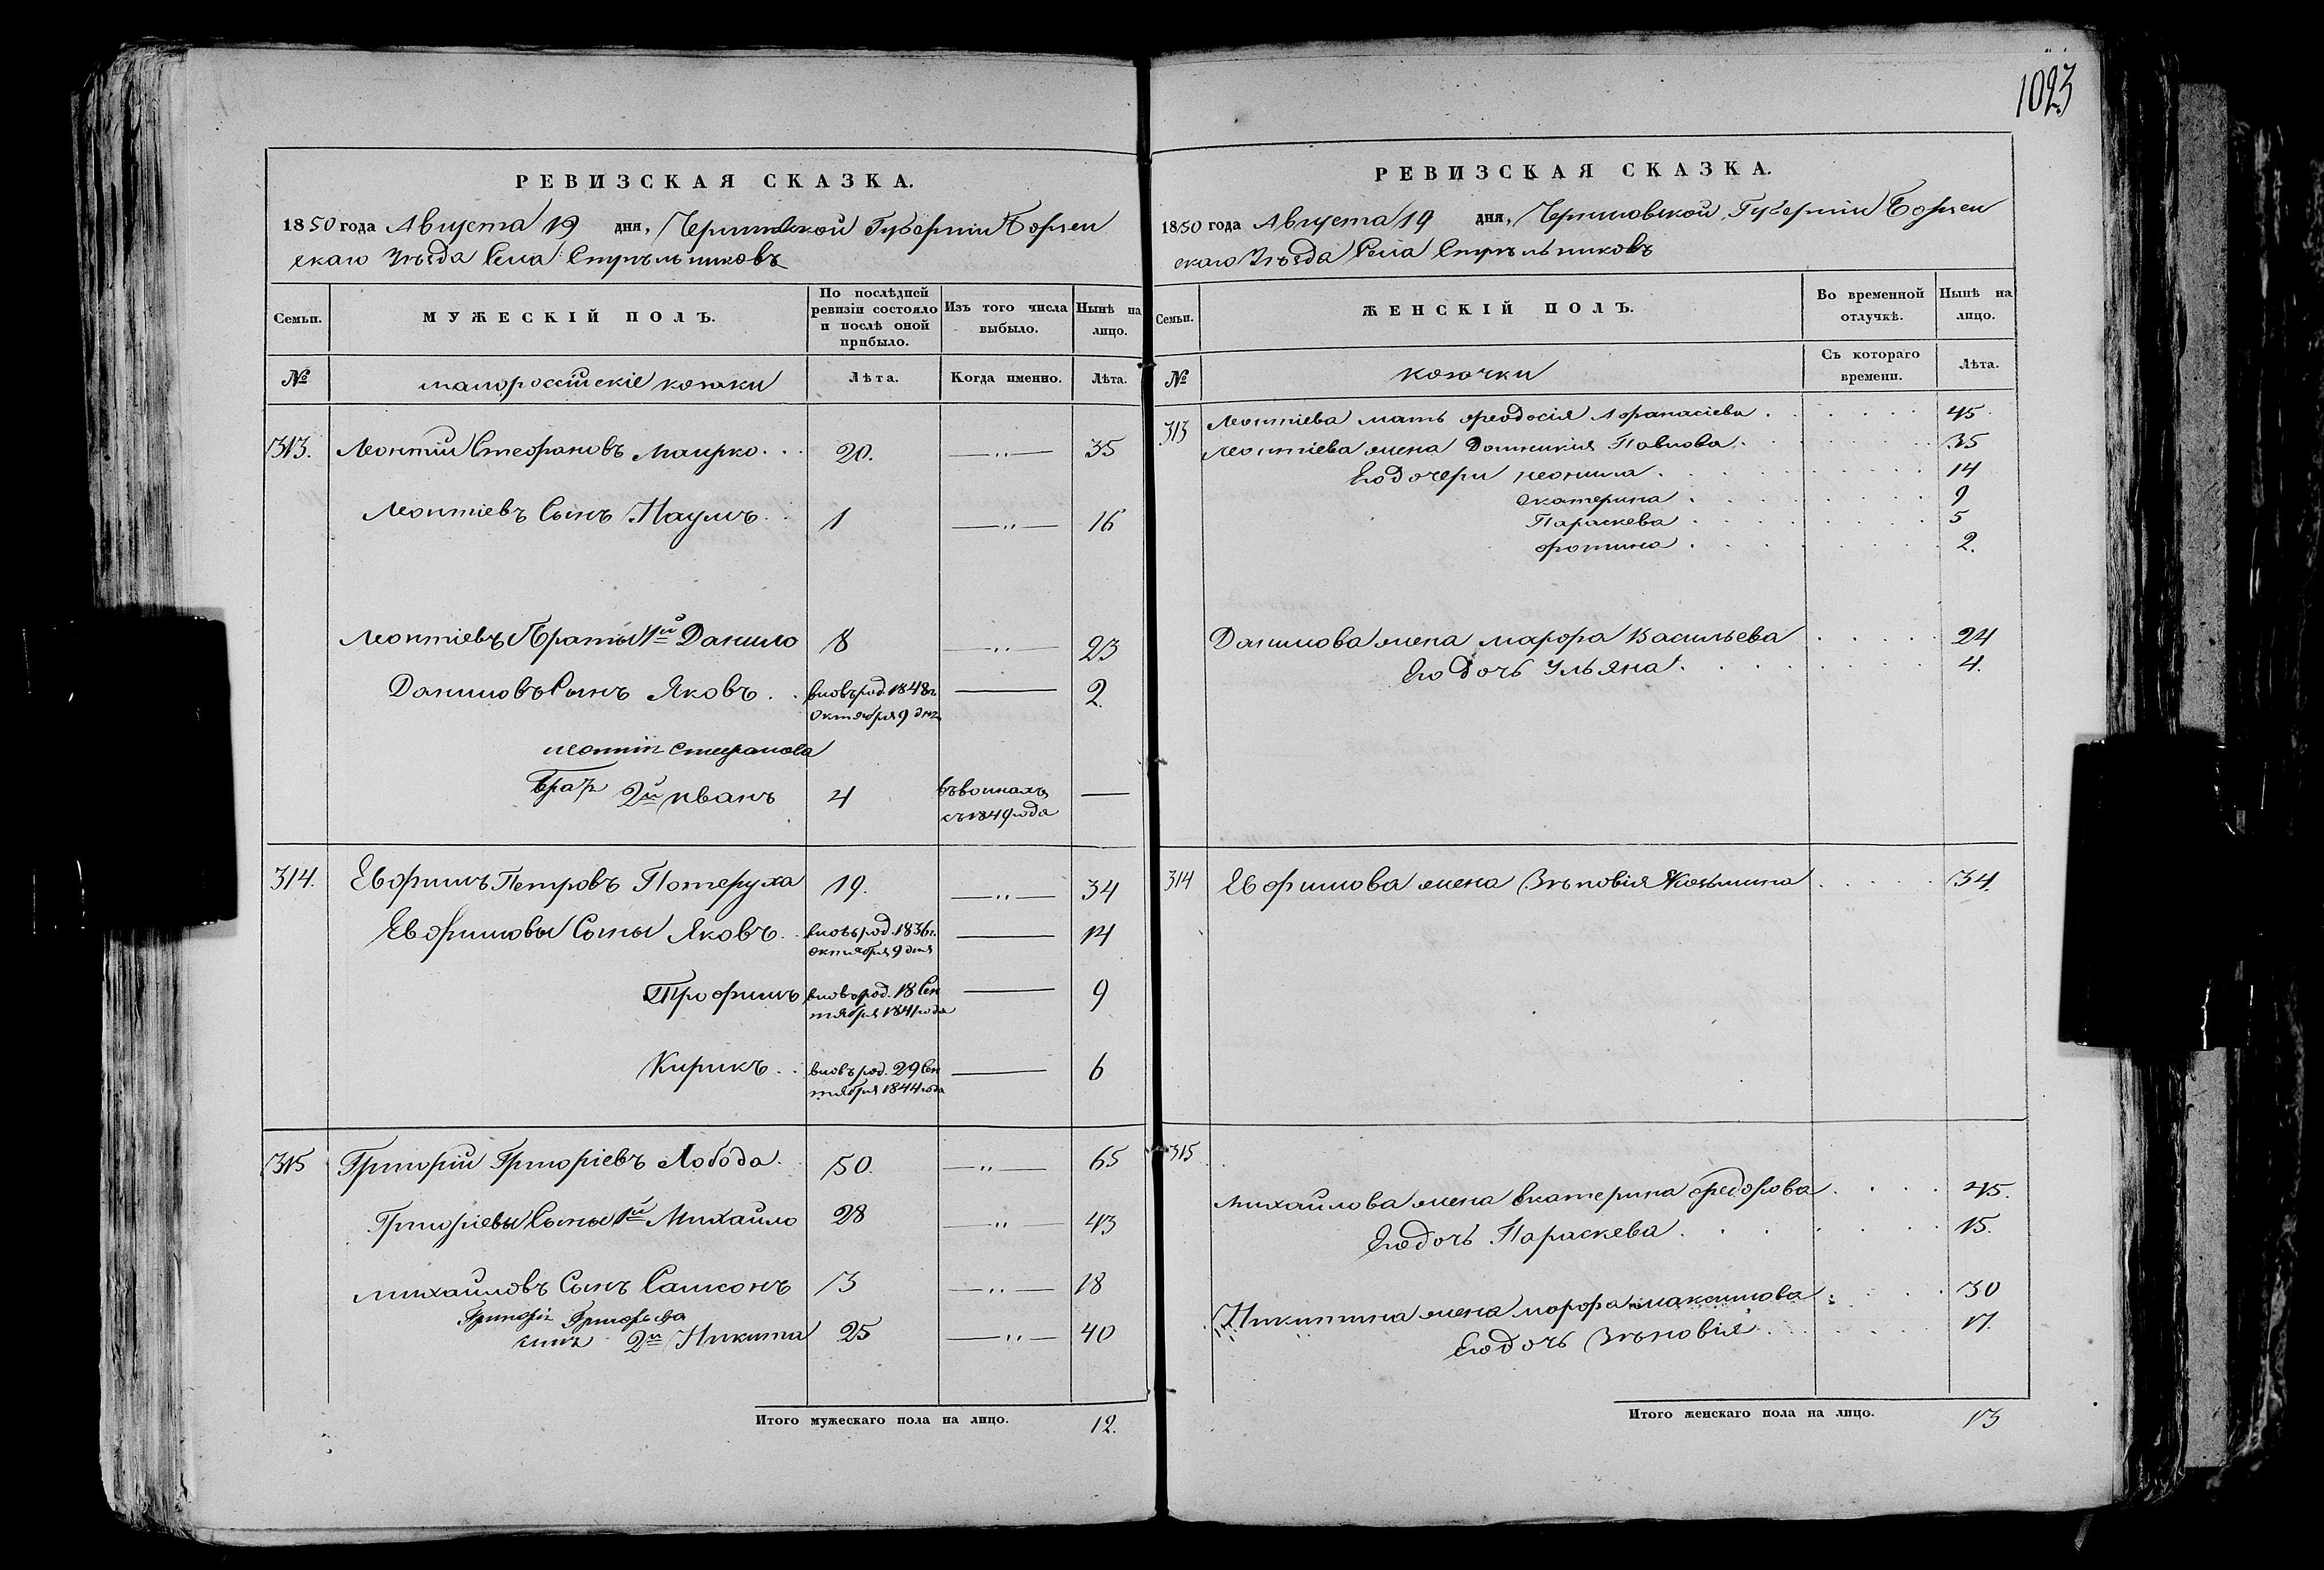 1023
РЕВИЗСКАЯ СКАЗКА.
1850 года Августа 19 дня, Черниговской Губернии Борзен
скаго Уѣзда Села Стрѣльниковъ
Семьи. МУЖЕСКІЙ ПОЛЪ. По послѣдней ревизіи состояло и послѣ оной прибыло. Изъ того числа выбыло. Нынѣ на лицо.
№ малороссійскіе козаки Лѣта. Когда именно. Лѣта.
313. Леонтій Стефановъ Маирко 20. —"— 35
Леонтіевъ Сынъ Наумъ 1 —"— 16
Леонтіевъ Браты 1й Данило 8 —"— 23
Даниловъ Сынъ Яковъ вновь род. 1848г. — 2.
Октября 9 дня
Стефанова
Братъ 2й иванъ 4 —
съ 1849 года
314. Евфимъ Петровъ Потеруха 19. —"— 34
Евфимовы Сыны Яковъ вновь род. 1836г. — 14
октября 9 дня
Трофимъ вновь род. 18 Сен — 9
тября 1841 года
Кирикъ вновь род. 29 Сен — 6
тября 1844 года
315 Григорій Григоріевъ Лобода 50. —"— 65
Григоріевы Сыны 1й Михайло 28 —"— 43
михайловъ Сынъ Самсонъ 3 —"— 18
Григорія Григорьева
сынъ 2й Никита 25 —"— 40
Итого мужескаго пола на лицо. 12.
РЕВИЗСКАЯ СКАЗКА.
1850 года Августа 19 дня, Черниговской Губернии Борзен
скаго Уѣзда Села Стрѣльниковъ
Семьи. ЖЕНСКІЙ ПОЛЪ. Во временной отлучкѣ. Нынѣ на лицо.
№ козачки Съ котораго времени. Лѣта.
313 Леонтіева мать феодосія Афанасіева 45
Леонтіева жена Домникія Павлова 35
Его дочери неонила 14
Екатерина 9
Параскева 5
фотина 2.
Данилова жена марфа Васильева 24
Его дочь Ульяна 4.
314 Евфимова жена Зѣновія Козьмина 34.
315
михайлова жена Екатерина федорова 45.
Его дочь Параскева 15.
Никитина жена марфа максимова 30
Его дочь Зѣновія 17.
Итого женскаго пола на лицо. 13